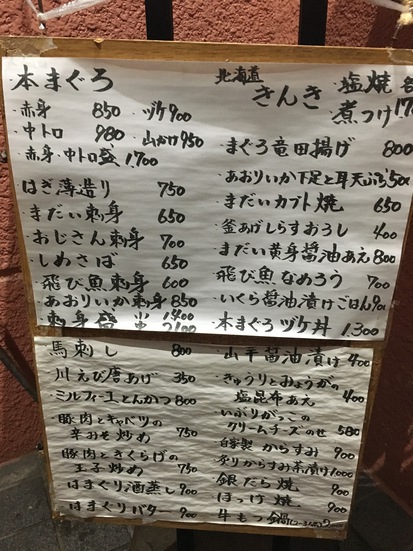 本まぐろ
赤身 850 ヅケ 900
中トロ 980 山かけ 950
赤身・中トロ盛 1,700
はぎ薄造り 750
まだい刺身 650
おじさん刺身 700
しめさば 650
飛び魚刺身 600
あおりいか刺身 850
刺身盛
北海道
きんき 塩焼
煮つけ
まぐろ竜田揚げ 800
あおりいか下足と耳天ぷら
まだいカブト焼 650
釜あげしらすおろし 400
まだい黄身醤油あえ 800
飛び魚なめろう 700
いくら醤油漬けごはん
本まぐろヅケ丼 1,300
馬刺し 800
川えび唐あげ 350
ミルフィーユとんかつ 800
豚肉とキャベツの
辛みそ炒め 750
豚肉ときくらげの
玉子炒め 750
はまぐり酒蒸し 900
はまぐりバター 900
山芋醤油漬け 400
きゅうりとみょうがの
塩昆布あえ 400
いぶりがっこの
クリームチーズのせ 580
自家製 からすみ 900
炙りからすみ茶漬け 1,000
銀だら焼 900
ほっけ焼 900
牛もつ鍋